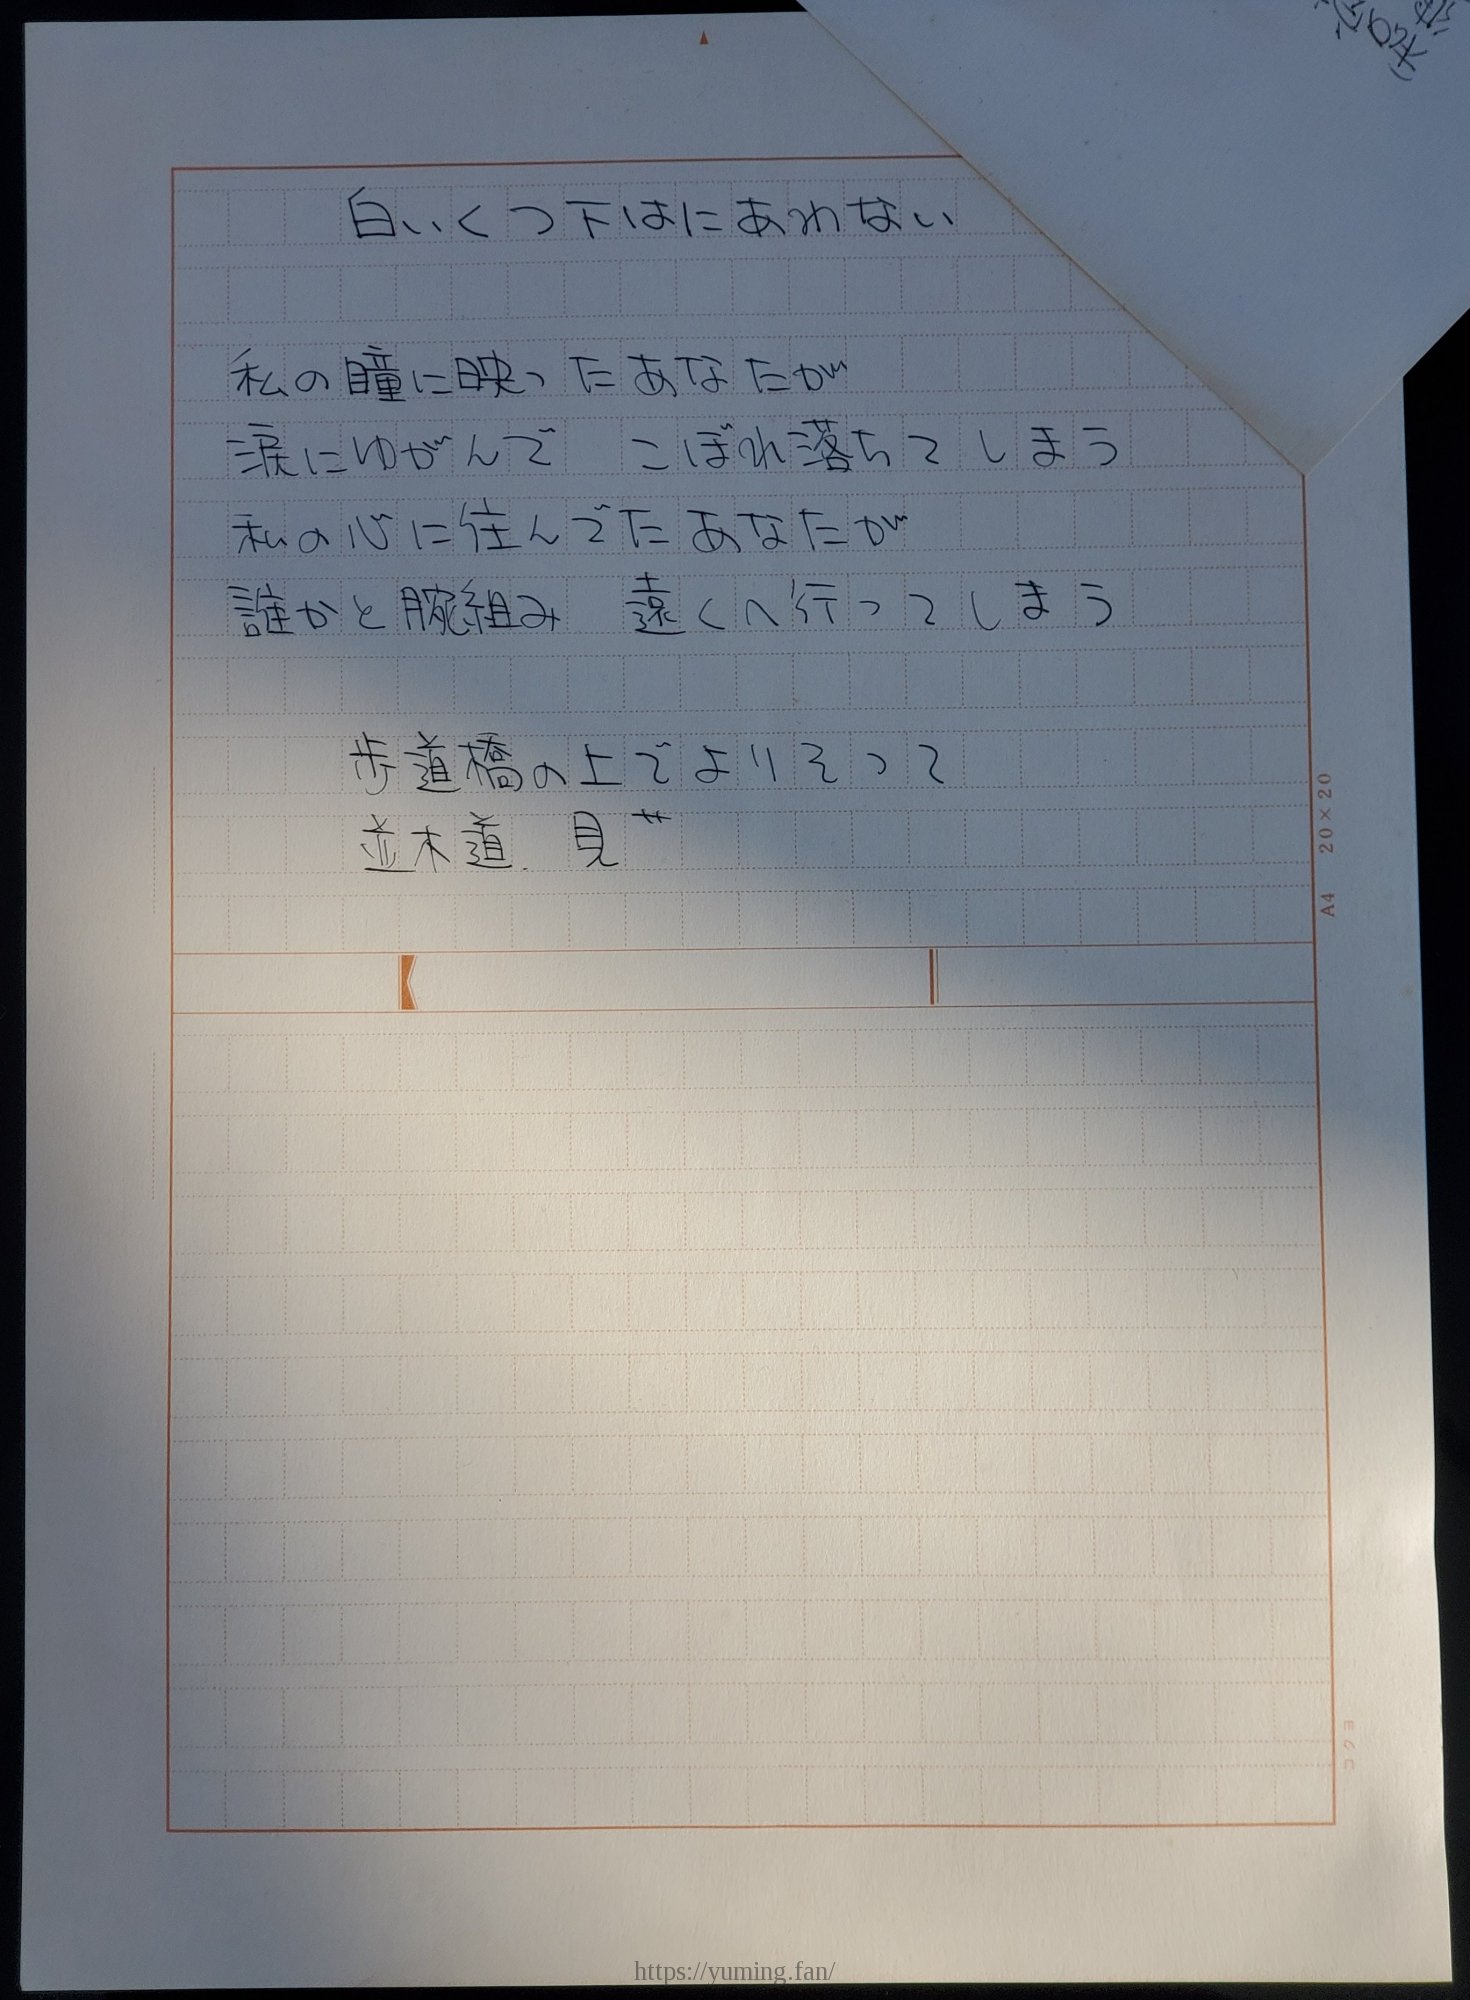 白いくつ下はにあわない
私の瞳に映ったあなたが
涙にゆがんで　こぼれ落ちてしまう
私の心に住んでたあなたが
誰かと腕組み　遠くへ行ってしまう
歩道橋の上でよりそって
並木道　見
A4　20×20
コクヨ
https://yuming.fan/